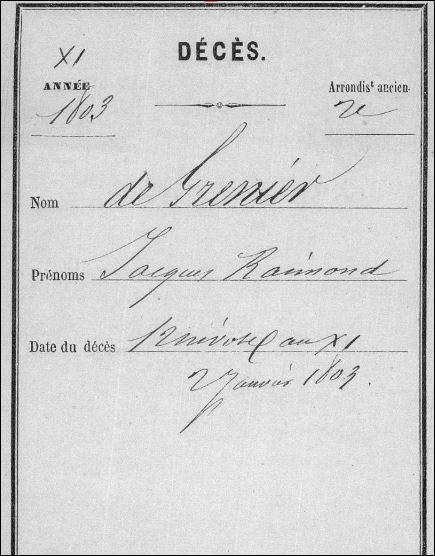 DÉCÈS.
XI
ANNÉE
1803
Arrondist ancien
2e
Nom de Grenier
Prénoms Jacques Raimond
Date du décès 12 nivose an XI
2 Janvier 1803.